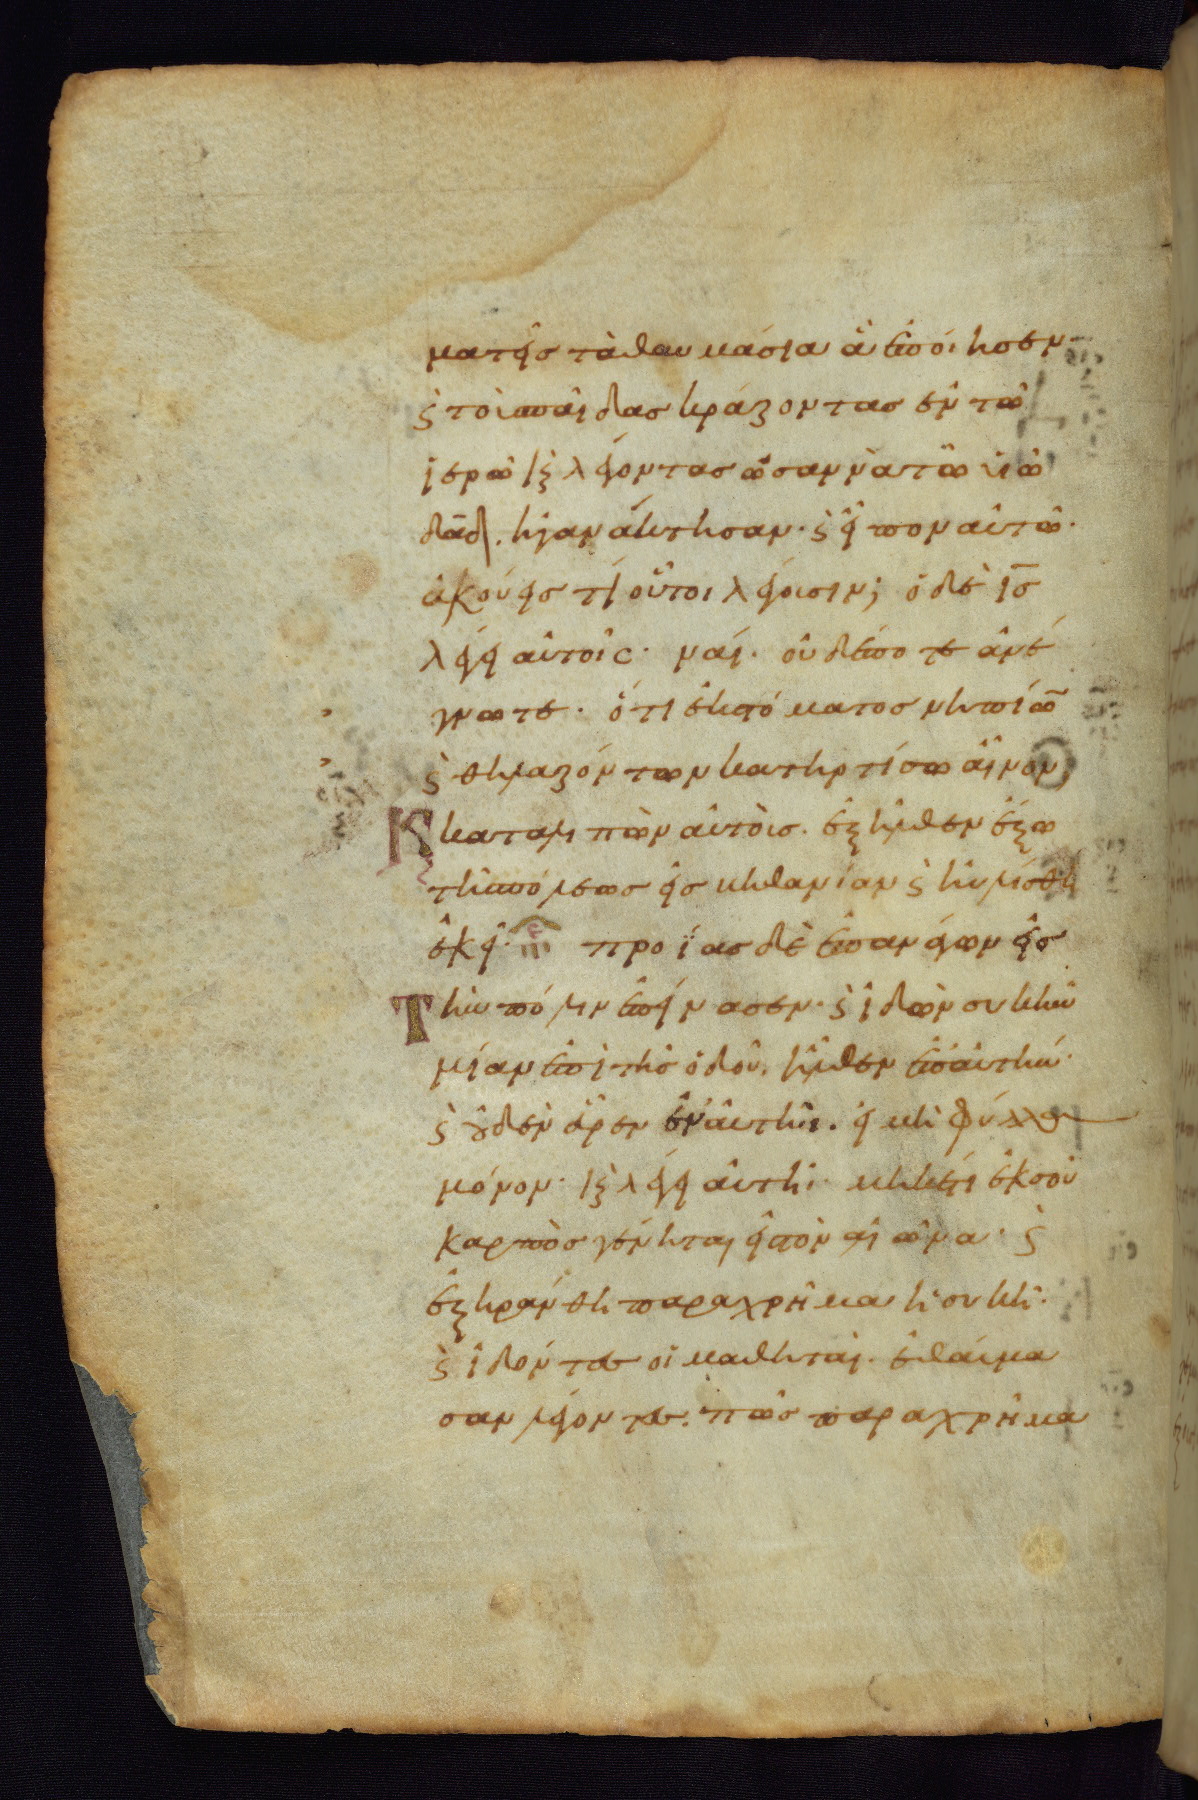 ματεῖς τὰ θαυμάσια ἃ ἐποίησεν
ϗ τοὺς παῖδας κράζοντας ἐν τῶ
ἱερῶ ϗ λέγοντας ὡσαννὰ τῶ υἱῶ
δᾱδ. ἠγανάκτησαν· ϗ εἶπον αὐτῶ·
ἀκούεις τί οὗτοι λέγουσιν; ὁ δὲ ις̄
λέγει αὐτοῖς· ναί. οὐδέποτε ἀνέ
γνωτε· ὅτι ἐκ στόματος νηπίω̄
ϗ θηλαζόντων κατηρτίσω αἶνον;
Κ καταλιπὼν αὐτοὺς. ἐξῆλθεν ἔξω
τῆς πόλεως εἰς βηθανίαν ϗ ηὐλίσθη
ἐκεῖ· πρωΐας δὲ ἐπανάγων εἰς
Τὴν πόλιν ἐπείνασεν· ϗ ἰδὼν συκῆν
μίαν ἐπὶ τῆς ὁδοῦ. ἦλθεν ἐπ' αὐτήν·
ϗ οὐδὲν εὗρεν ἐν αὐτῆι. εἰ μὴ φύλλα
μόνον· ϗ λέγει αὐτῆι· μηκέτι ἐκ σοῦ
καρπὸς γένηται εἰς τὸν αἰῶνα· ϗ
ἐξηράνθη παραχρῆμα ἡ συκῆ·
ϗ ἰδόντες οἱ μαθηταὶ. ἐθαύμα
σαν λέγοντες· πῶς παραχρῆμα